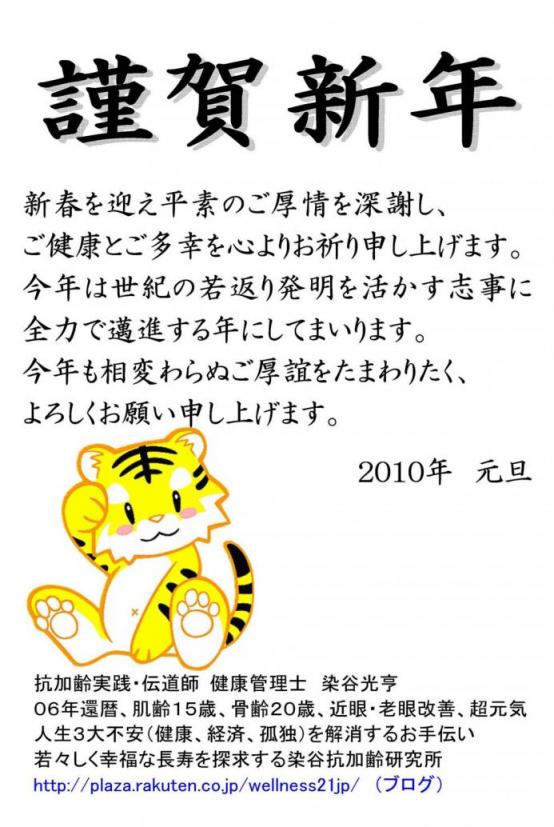 謹賀新年
新春を迎え平素のご厚情を深謝し、
ご健康とご多幸を心よりお祈り申し上げます。
今年は世紀の若返り発明を活かす志事に
全力で邁進する年にしてまいります。
今年も相変わらぬご厚誼をたまわりたく、
よろしくお願い申し上げます。
2010年 元旦
抗加齢実践・伝道師 健康管理士 染谷光亨
06年還暦、肌齢15歳、骨齢20歳、近眼・老眼改善、超元気
人生3大不安(健康、経済、孤独)を解消するお手伝い
若々しく幸福な長寿を探求する染谷抗加齢研究所
http://plaza.rakuten.co.jp/wellness21jp/ (ブログ)